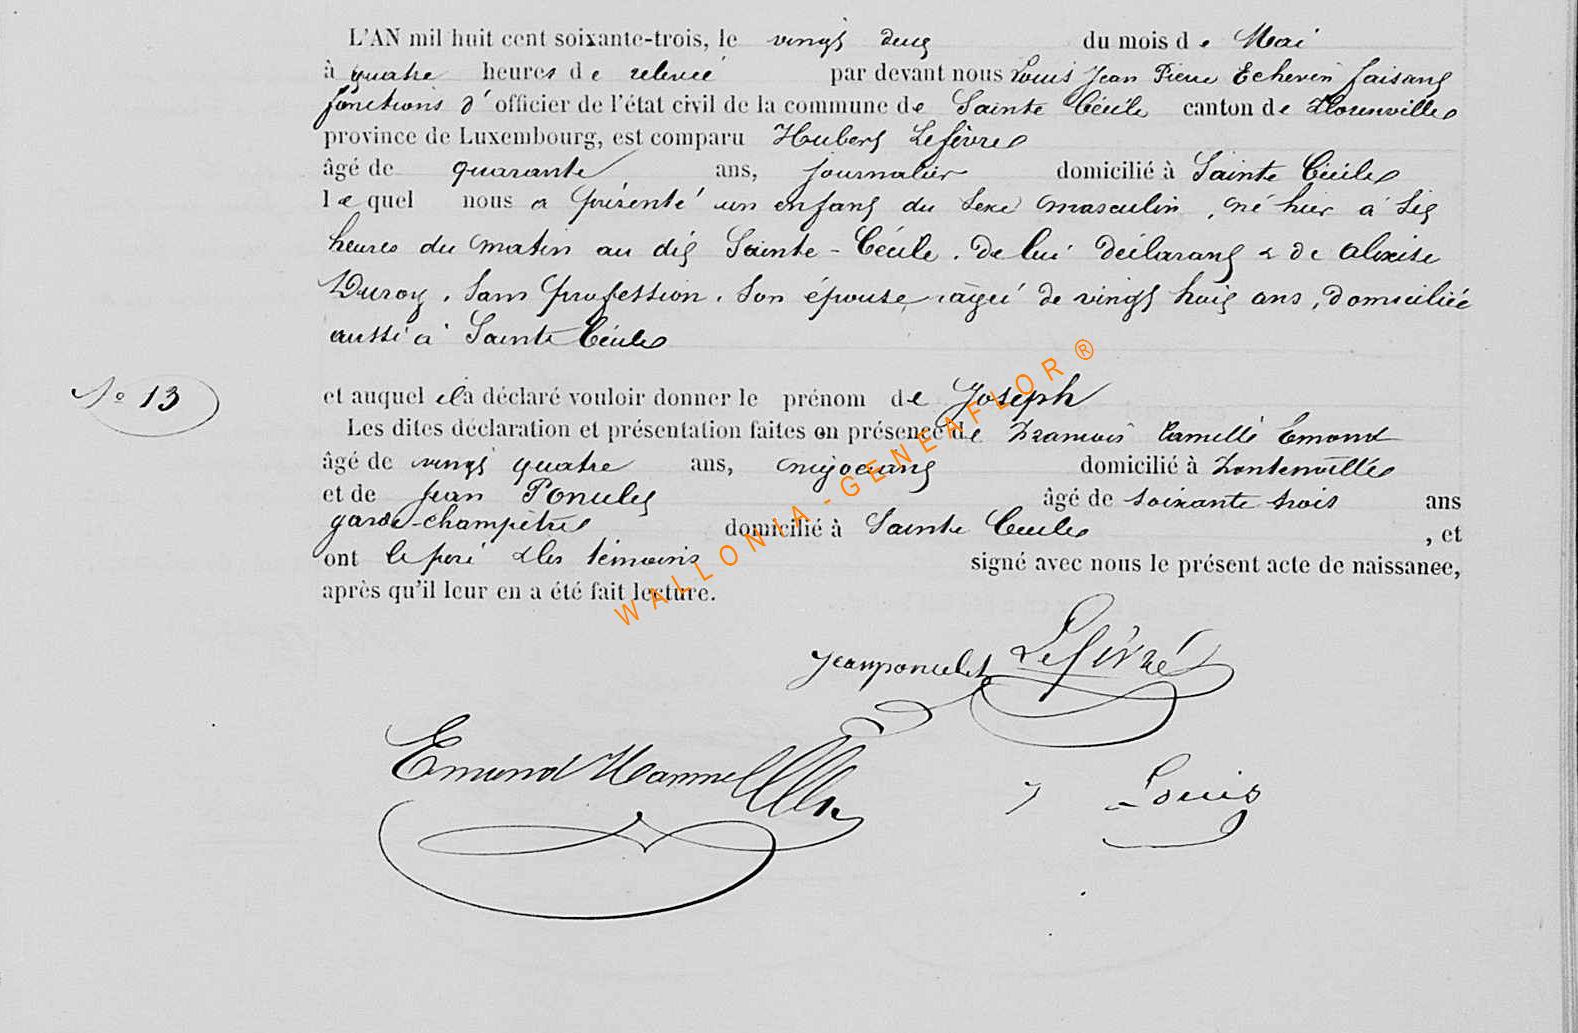 L'AN mil huit cent soixante-trois, le vingt deux du mois de Mai
à quatre heures de relevée par devant nous Louis Jean Pierre Echevin faisant
fonctions d'officier de l'état civil de la commune de Sainte Cécile canton de Florenville
province de Luxembourg, est comparu Hubert Lefèvre
âgé de quarante ans, journalier domicilié à Sainte Cécile
lequel nous a présenté un enfant du sexe masculin, né hier à six
heures du matin au dit Sainte-Cécile, de lui déclarant & de Aloxise
Duroy, sans profession, son épouse, âgée de vingt huit ans, domiciliée
aussi à Sainte Cécile
N° 13
et auquel il a déclaré vouloir donner le prénom de Joseph
Les dites déclaration et présentation faites en présence de François Camille Emond
âgé de vingt quatre ans, négociant domicilié à Fontenoille
et de Jean Poncelet âgé de soixante trois ans
garde-champêtre domicilié à Sainte Cécile, et
ont le père & les témoins signé avec nous le présent acte de naissance,
après qu'il leur en a été fait lecture.
WALLONIA-GENEAFLOR®
Jean poncelet Lefèvre
Emond
J Louis